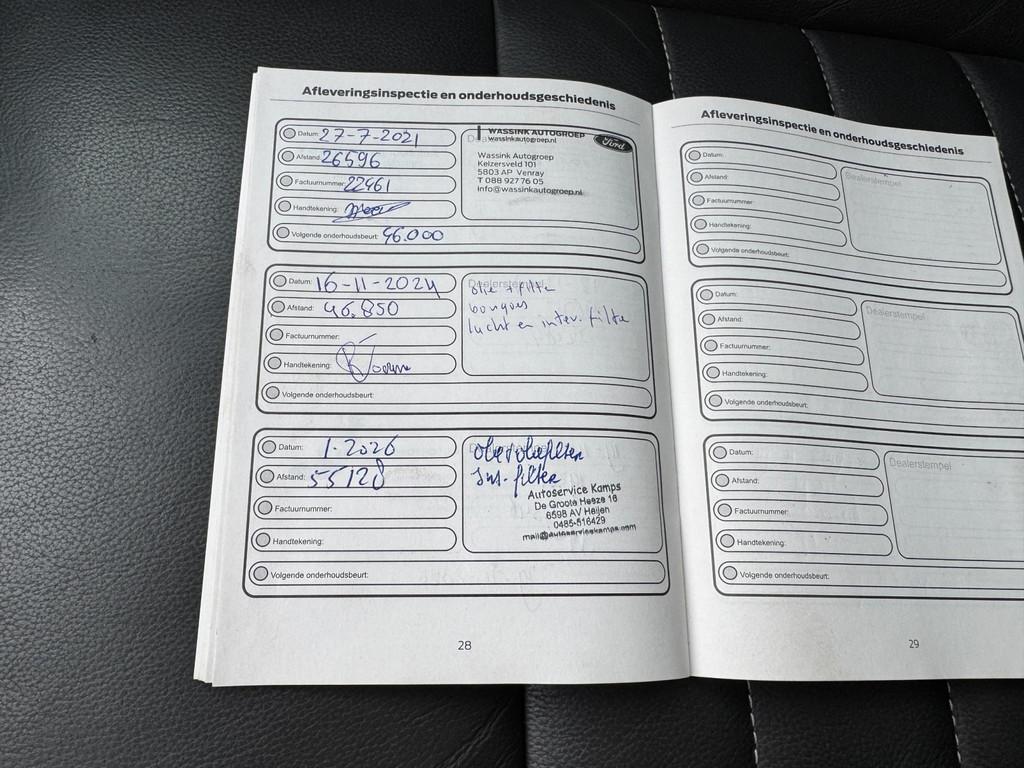 Afleveringsinspectie en onderhoudsgeschiedenis
Datum: 27-7-2021
Afstand: 26596
Factuurnummer: 22461
Handtekening:
Volgende onderhoudsbeurt: 46.000
WASSINK AUTOGROEP
wassinkautogroep.nl
Ford
Wassink Autogroep
Keizersveld 101
5803 AP Venray
T 088 927 76 05
info@wassinkautogroep.nl
Datum: 16-11-2024
Afstand: 46.850
Factuurnummer:
Handtekening:
Volgende onderhoudsbeurt:
Dealerstempel
olie + filter
bougies
lucht en inter. filter
Datum: 1-2026
Afstand: 55128
Factuurnummer:
Handtekening:
Volgende onderhoudsbeurt:
Autoservice Kamps
De Groote Heeze 16
6598 AV Heijen
0485-516429
mail@autoservicekamps.com
28
Afleveringsinspectie en onderhoudsgeschiedenis
Datum:
Afstand:
Factuurnummer:
Handtekening:
Volgende onderhoudsbeurt:
Dealerstempel
Datum:
Afstand:
Factuurnummer:
Handtekening:
Volgende onderhoudsbeurt:
Dealerstempel
Datum:
Afstand:
Factuurnummer:
Handtekening:
Volgende onderhoudsbeurt:
Dealerstempel
29